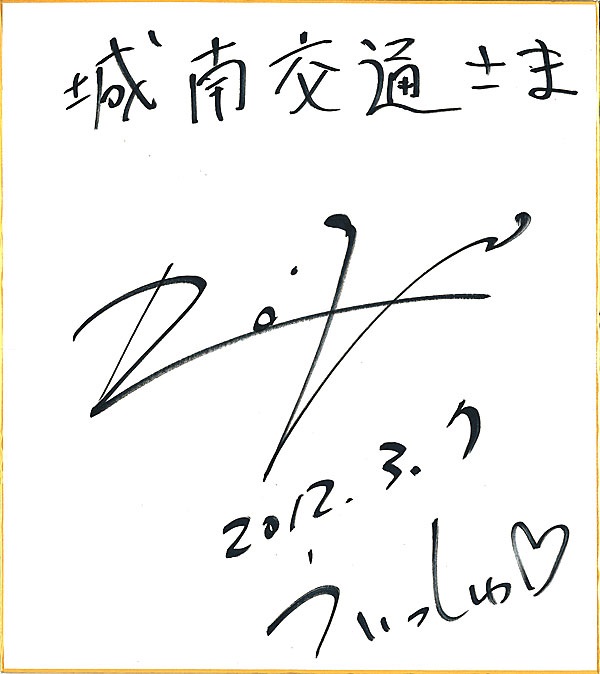 城南交通さま
2012.3.7
うぃっしゅ♡